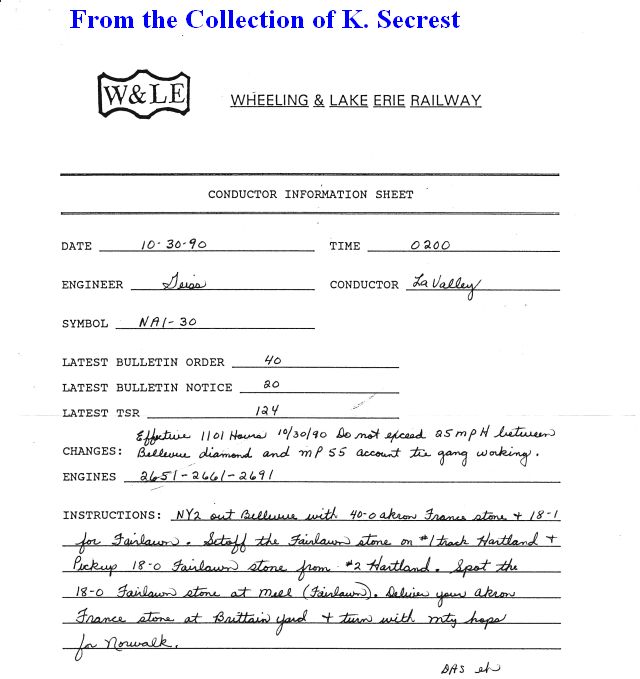 From the Collection of K. Secrest
W&LE
WHEELING & LAKE ERIE RAILWAY
CONDUCTOR INFORMATION SHEET
DATE 10-30-90 TIME 0200
ENGINEER Geiss CONDUCTOR LaValley
SYMBOL NA1-30
LATEST BULLETIN ORDER 40
LATEST BULLETIN NOTICE 20
LATEST TSR 124
Effective 1101 Hours 10/30/90 Do not exceed 25 mPH between
CHANGES: Bellevue diamond and mP 55 account tie gang working.
ENGINES 2651-2661-2691
INSTRUCTIONS: NY2 out Bellevue with 40-0 akron France stone + 18-1
for Fairlawn. Setoff the Fairlawn stone on #1 track Hartland +
Pickup 18-0 Fairlawn stone from #2 Hartland. Spot the
18-0 Fairlawn stone at mell (Fairlawn). Deliver your akron
France stone at Brittain yard + turn with mty hops
for Norwalk.
DAS